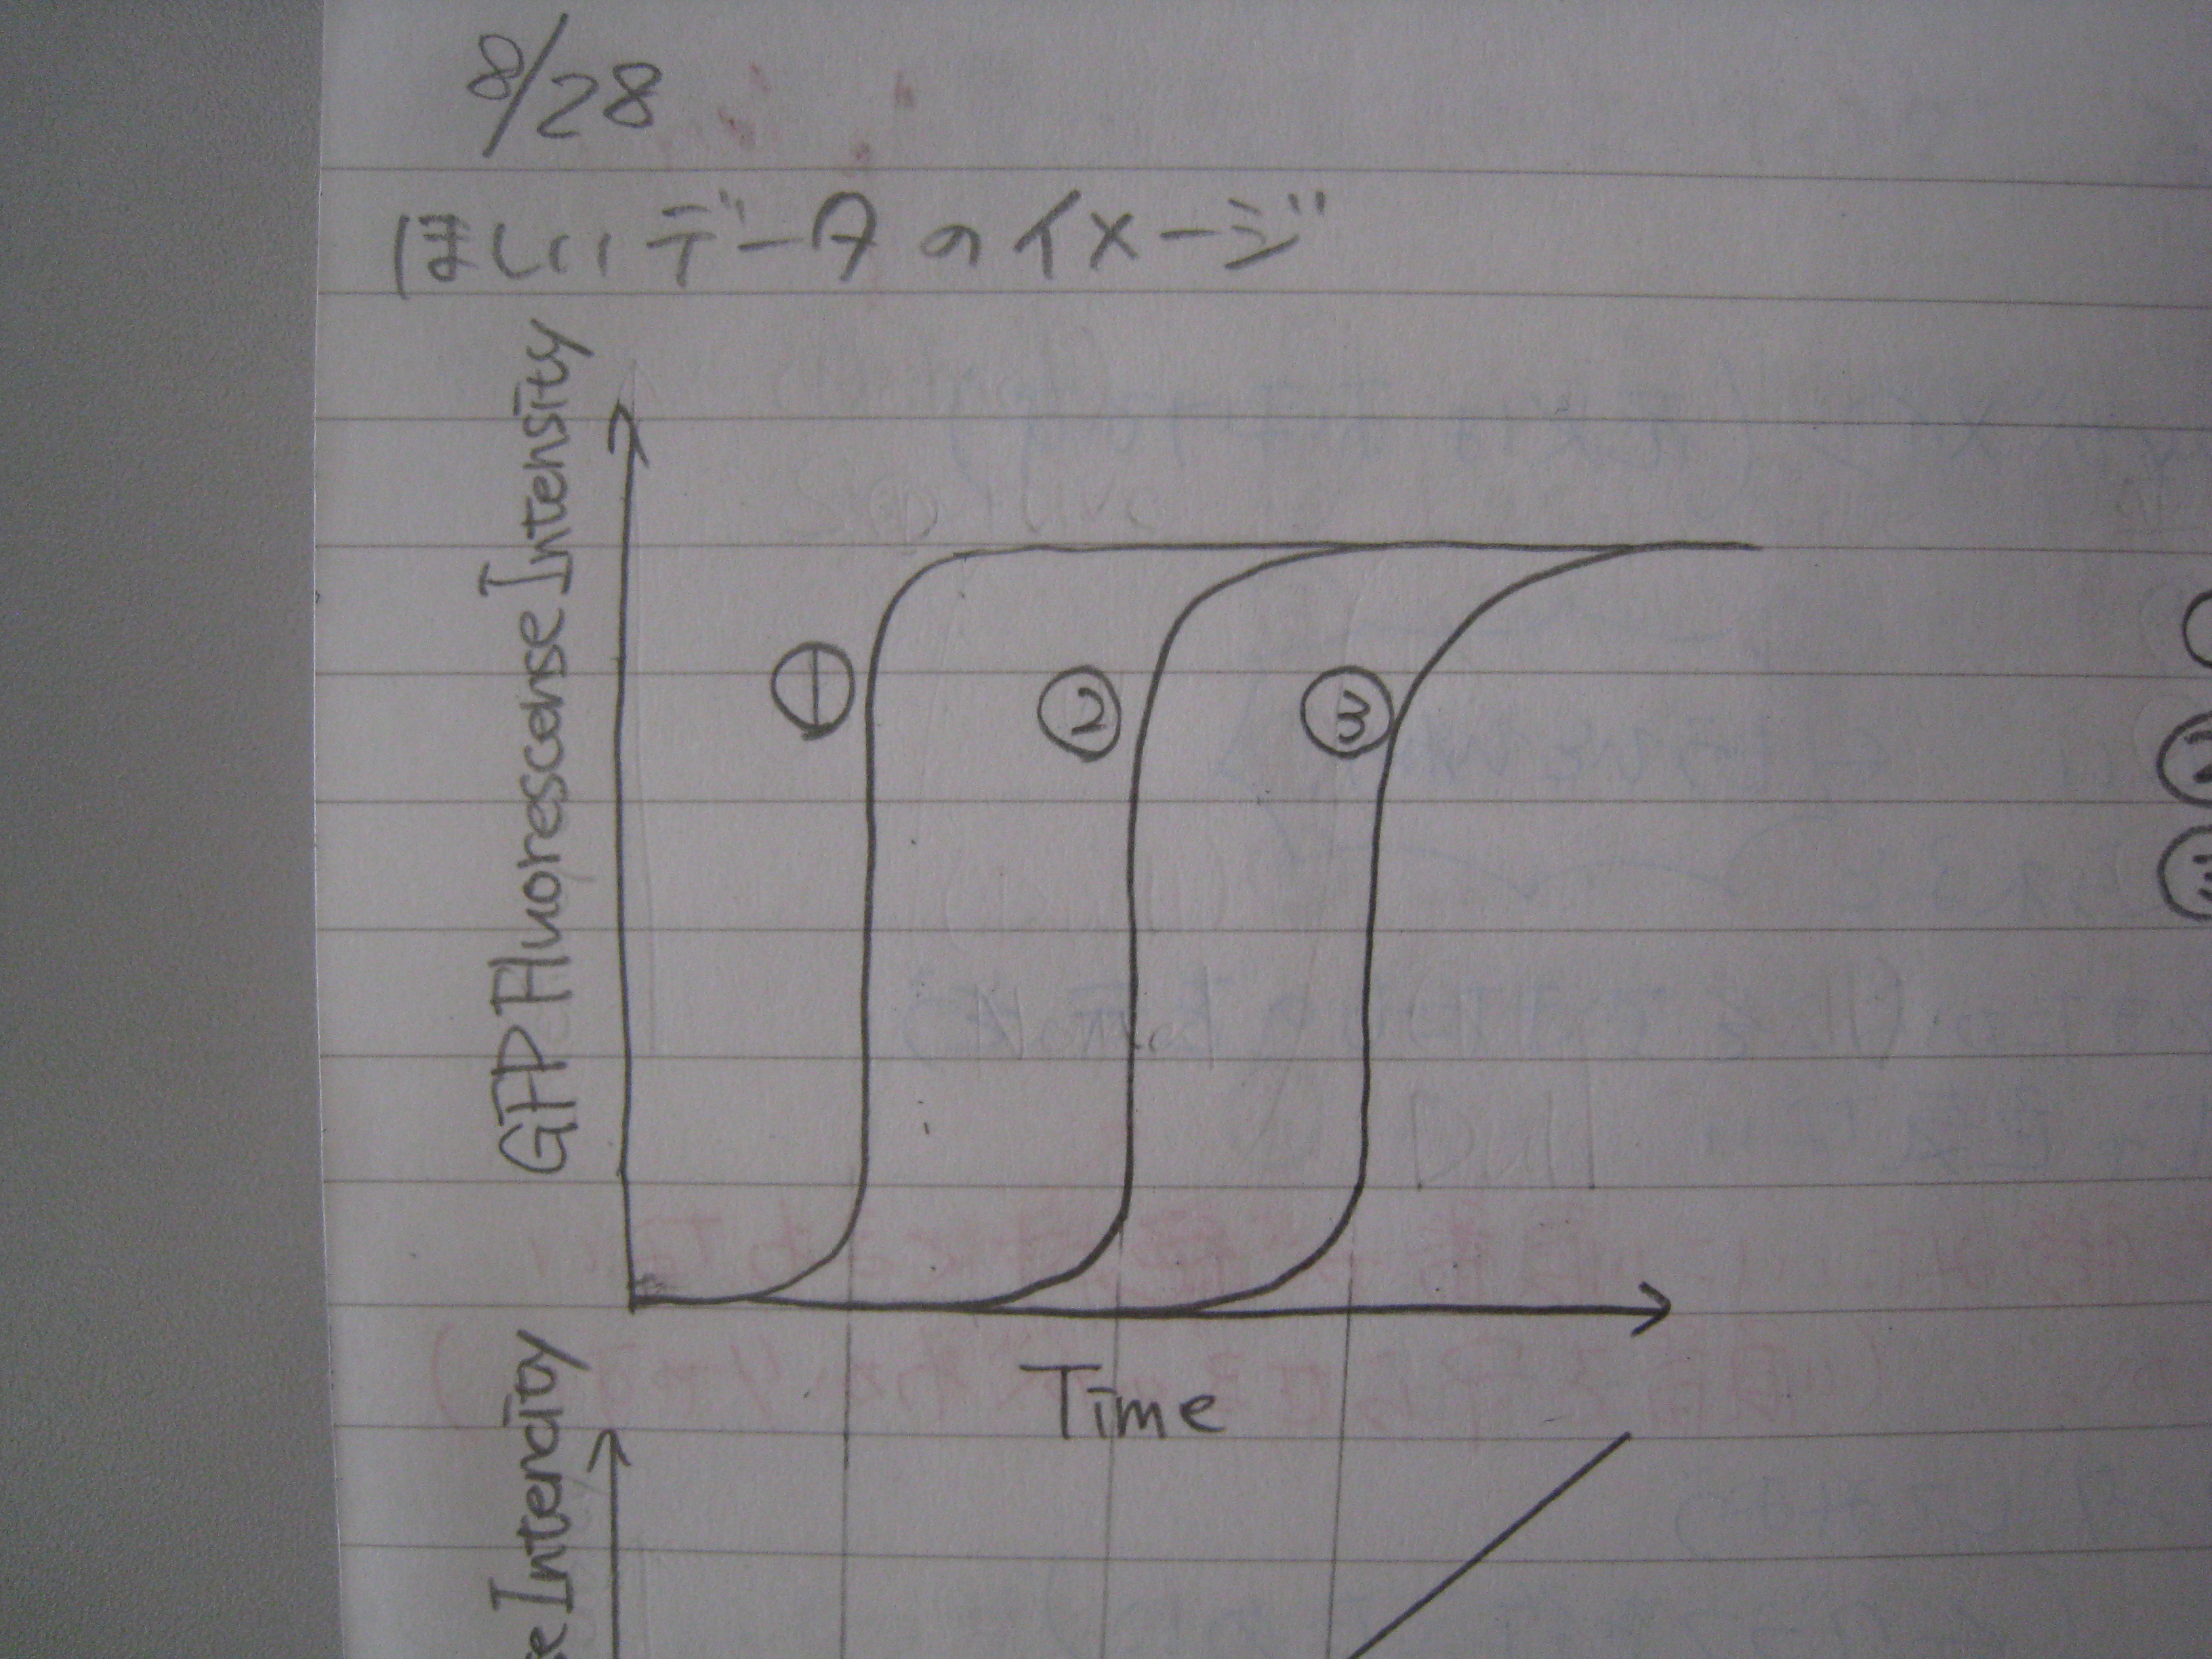 8/28
ほしいデータのイメージ
GFP Fluorescense Intensity
①
②
③
Time
se Intencity